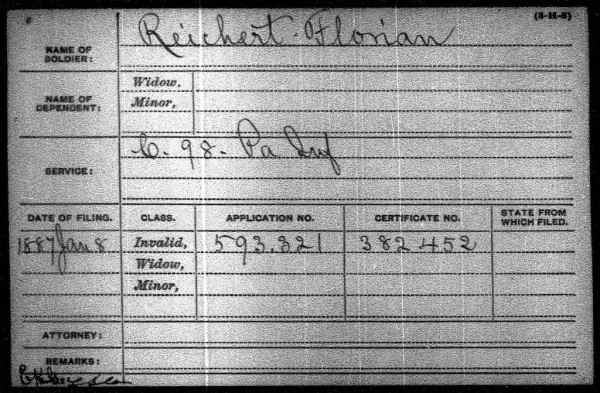 (3-H-8)
NAME OF SOLDIER: Reichert Florian
NAME OF DEPENDENT: Widow,
Minor,
SERVICE: C. 98. Pa Inf
DATE OF FILING. CLASS. APPLICATION NO. CERTIFICATE NO. STATE FROM WHICH FILED.
1887 Jan 8 Invalid, 593.321 382452
Widow,
Minor,
ATTORNEY:
REMARKS: